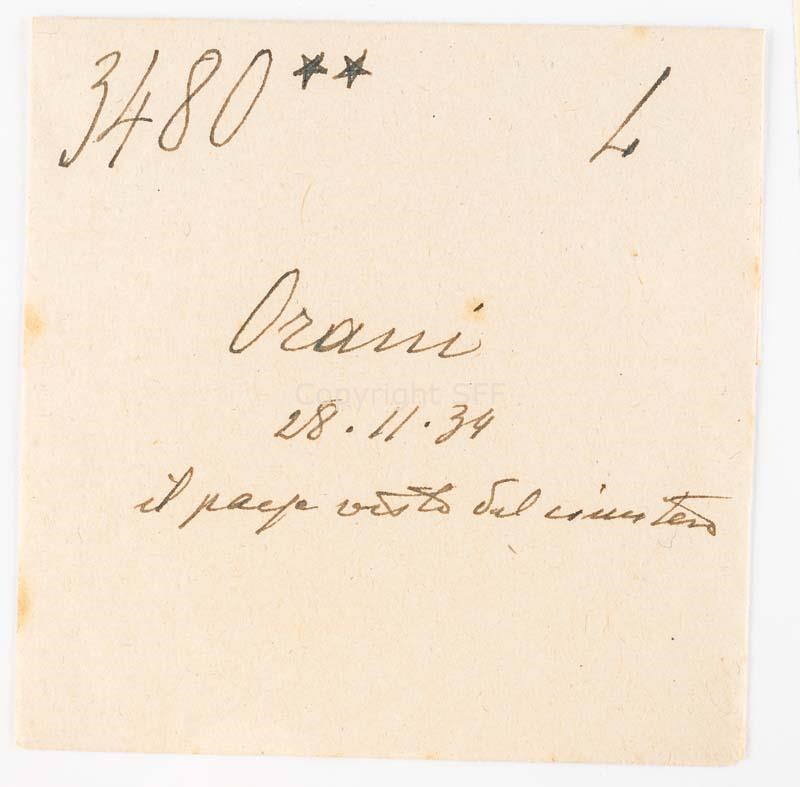 3480 ** L
Orani
Copyright SFF
28.11.34
il paese visto dal cimitero